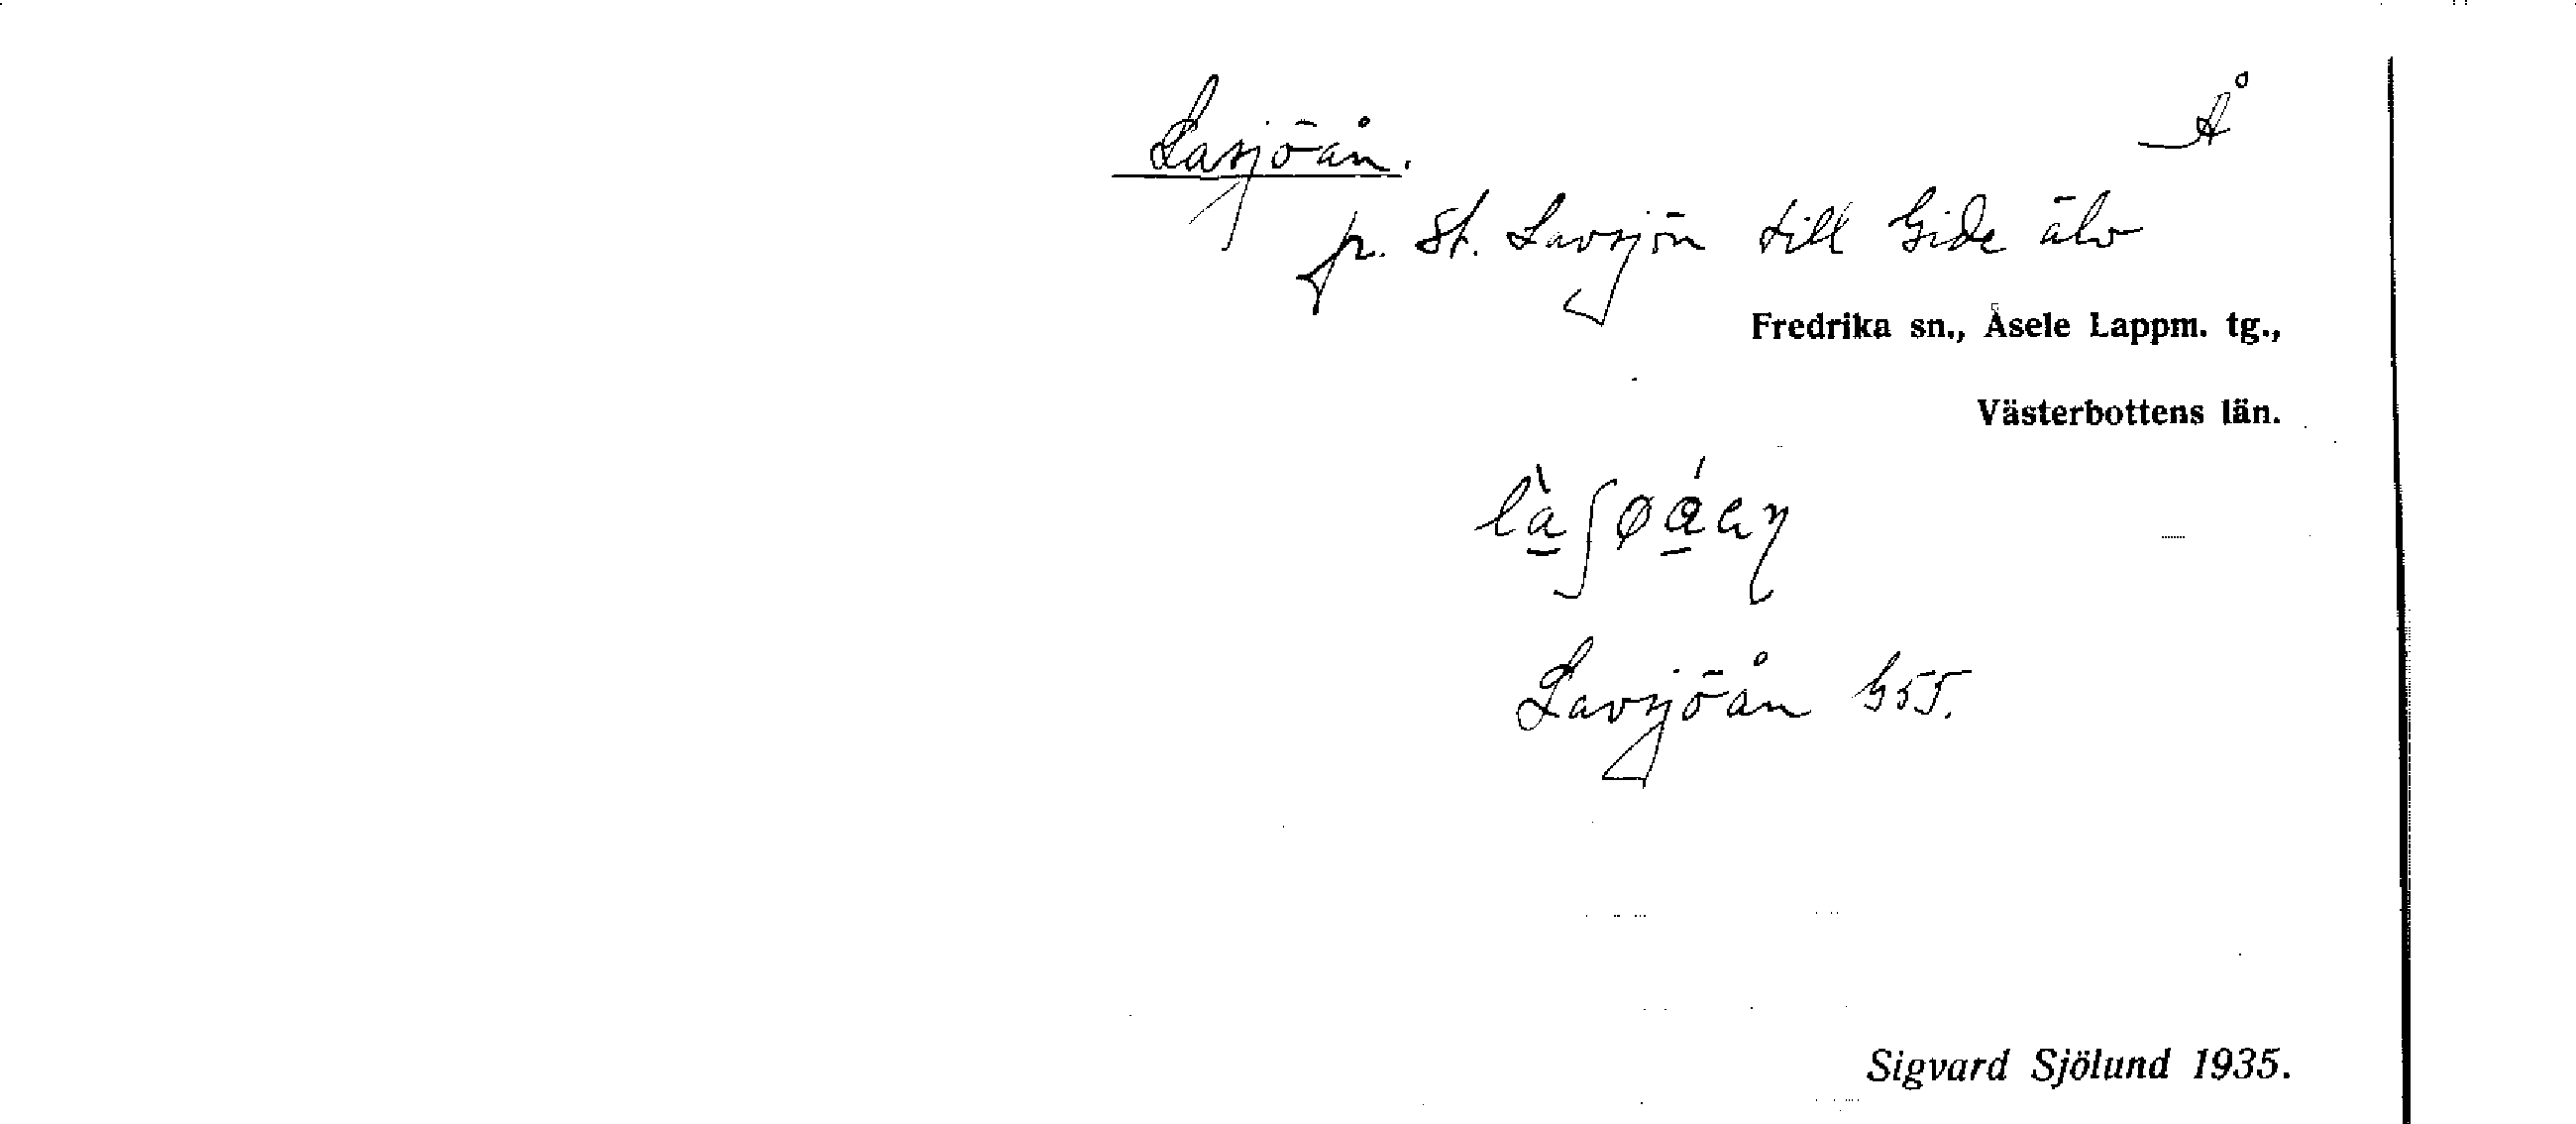 Lasjöån. Å
fr. St. Lavsjön till Gide älv
Fredrika sn., Åsele Lappm. tg.,
Västerbottens län.
Lavsjöån G55.
Sigvard Sjölund 1935.